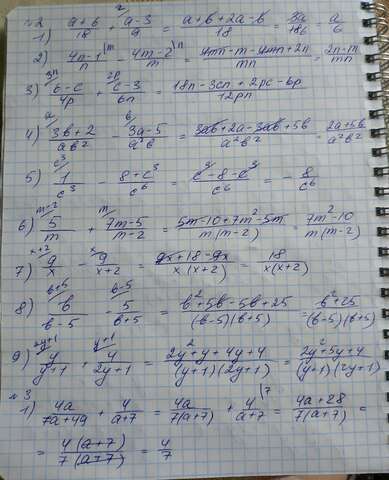 №2
1) (a+b)/18 + (a-3)/9 = (a+b+2a-b)/18 = 3a/18б = a/6
2) (4n-1)/n - (4m-2)/m = (4mn-m-4mn+2n)/mn = (2n-m)/mn
3) (6-c)/4p + (c-3)/6n = (18n-3cn+2pc-6p)/12pn
4) (3b+2)/ab² - (3a-5)/a²b = (3ab+2a-3ab+5b)/a²b² = (2a+5b)/a²b²
5) 1/c³ - (8+c³)/c⁶ = (c³-8-c³)/c⁶ = -8/c⁶
6) 5/m + (7m-5)/(m-2) = (5m-10+7m²-5m)/m(m-2) = (7m²-10)/m(m-2)
7) 9/x - 9/(x+2) = (9x+18-9x)/x(x+2) = 18/x(x+2)
8) b/(b-5) - 5/(b+5) = (b²+5b-5b+25)/(b-5)(b+5) = (b²+25)/(b-5)(b+5)
9) y/(y+1) + 4/(2y+1) = (2y²+y+4y+4)/(y+1)(2y+1) = (2y²+5y+4)/(y+1)(2y+1)
№3
1) 4a/(7a+49) + 4/(a+7) = 4a/7(a+7) + 4/(a+7) = (4a+28)/7(a+7) =
= 4(a+7)/7(a+7) = 4/7